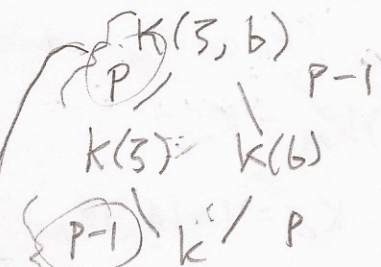 K(ζ, b)
p p-1
K(ζ) K(b)
p-1 K p